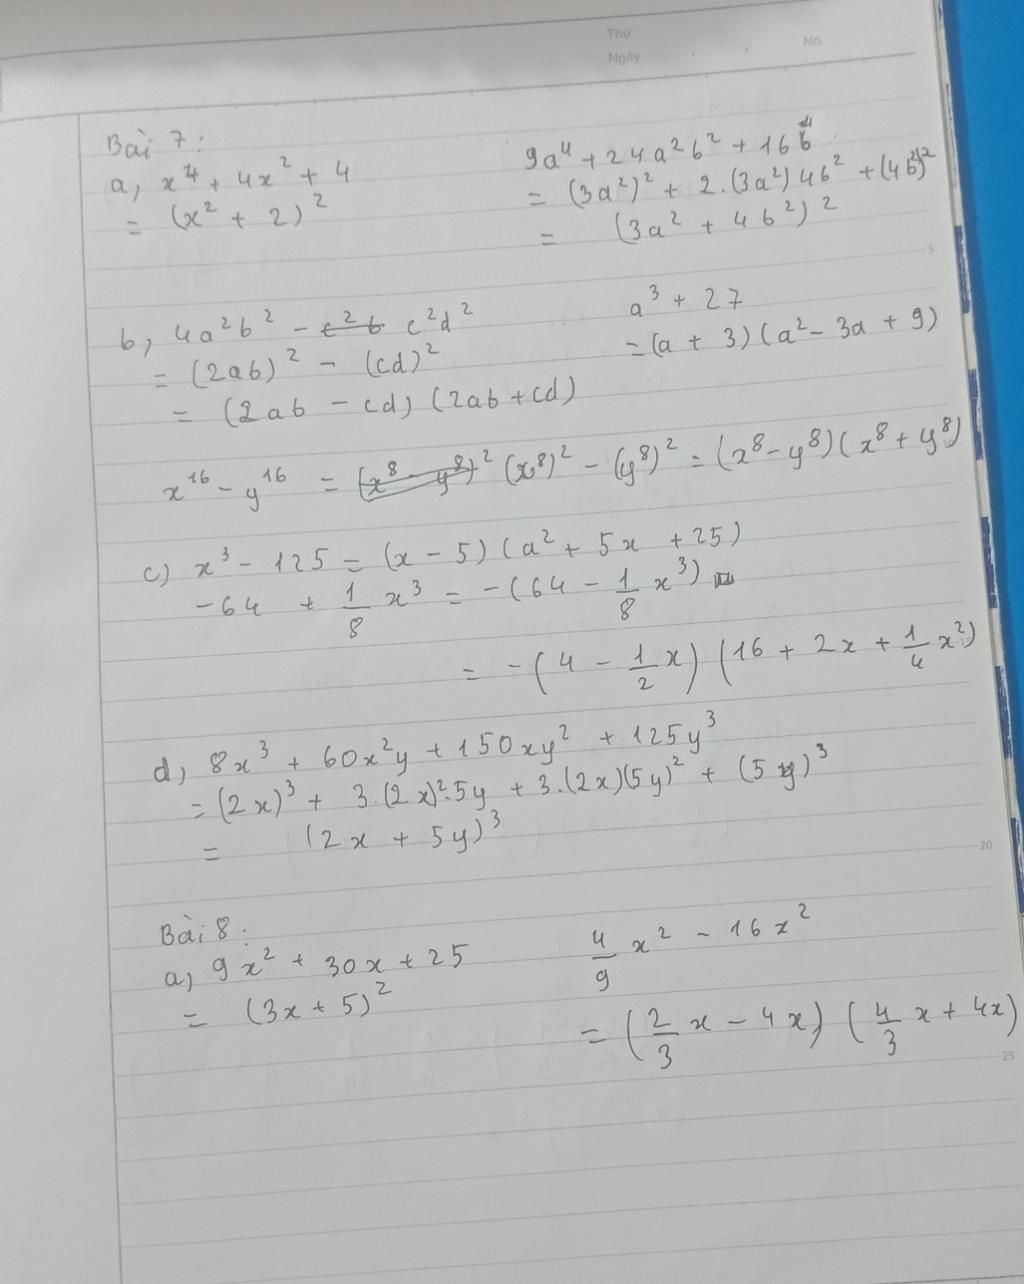 Thứ
Ngày
No.
Bài 7:
a, x⁴ + 4x² + 4
= (x² + 2)²
9a⁴ + 24a²b² + 16b⁴
= (3a²)² + 2.(3a²)4b² + (4b²)²
= (3a² + 4b²)²
5
b, 4a²b² - c²b c²d²
= (2ab)² - (cd)²
= (2ab - cd) (2ab + cd)
a³ + 27
= (a + 3)(a² - 3a + 9)
x¹⁶ - y¹⁶ = (x⁸ - y⁸)² (x⁸)² - (y⁸)² = (x⁸ - y⁸)(x⁸ + y⁸)
c) x³ - 125 = (x - 5)(a² + 5x + 25)
-64 + 1/8 x³ = -(64 - 1/8 x³)
= -(4 - 1/2 x) (16 + 2x + 1/4 x²)
d, 8x³ + 60x²y + 150xy² + 125y³
= (2x)³ + 3.(2x)².5y + 3.(2x)(5y)² + (5y)³
= (2x + 5y)³
20
Bài 8:
a, 9x² + 30x + 25
= (3x + 5)²
4/9 x² - 16x²
= (2/3 x - 4x) (4/3 x + 4x)
25